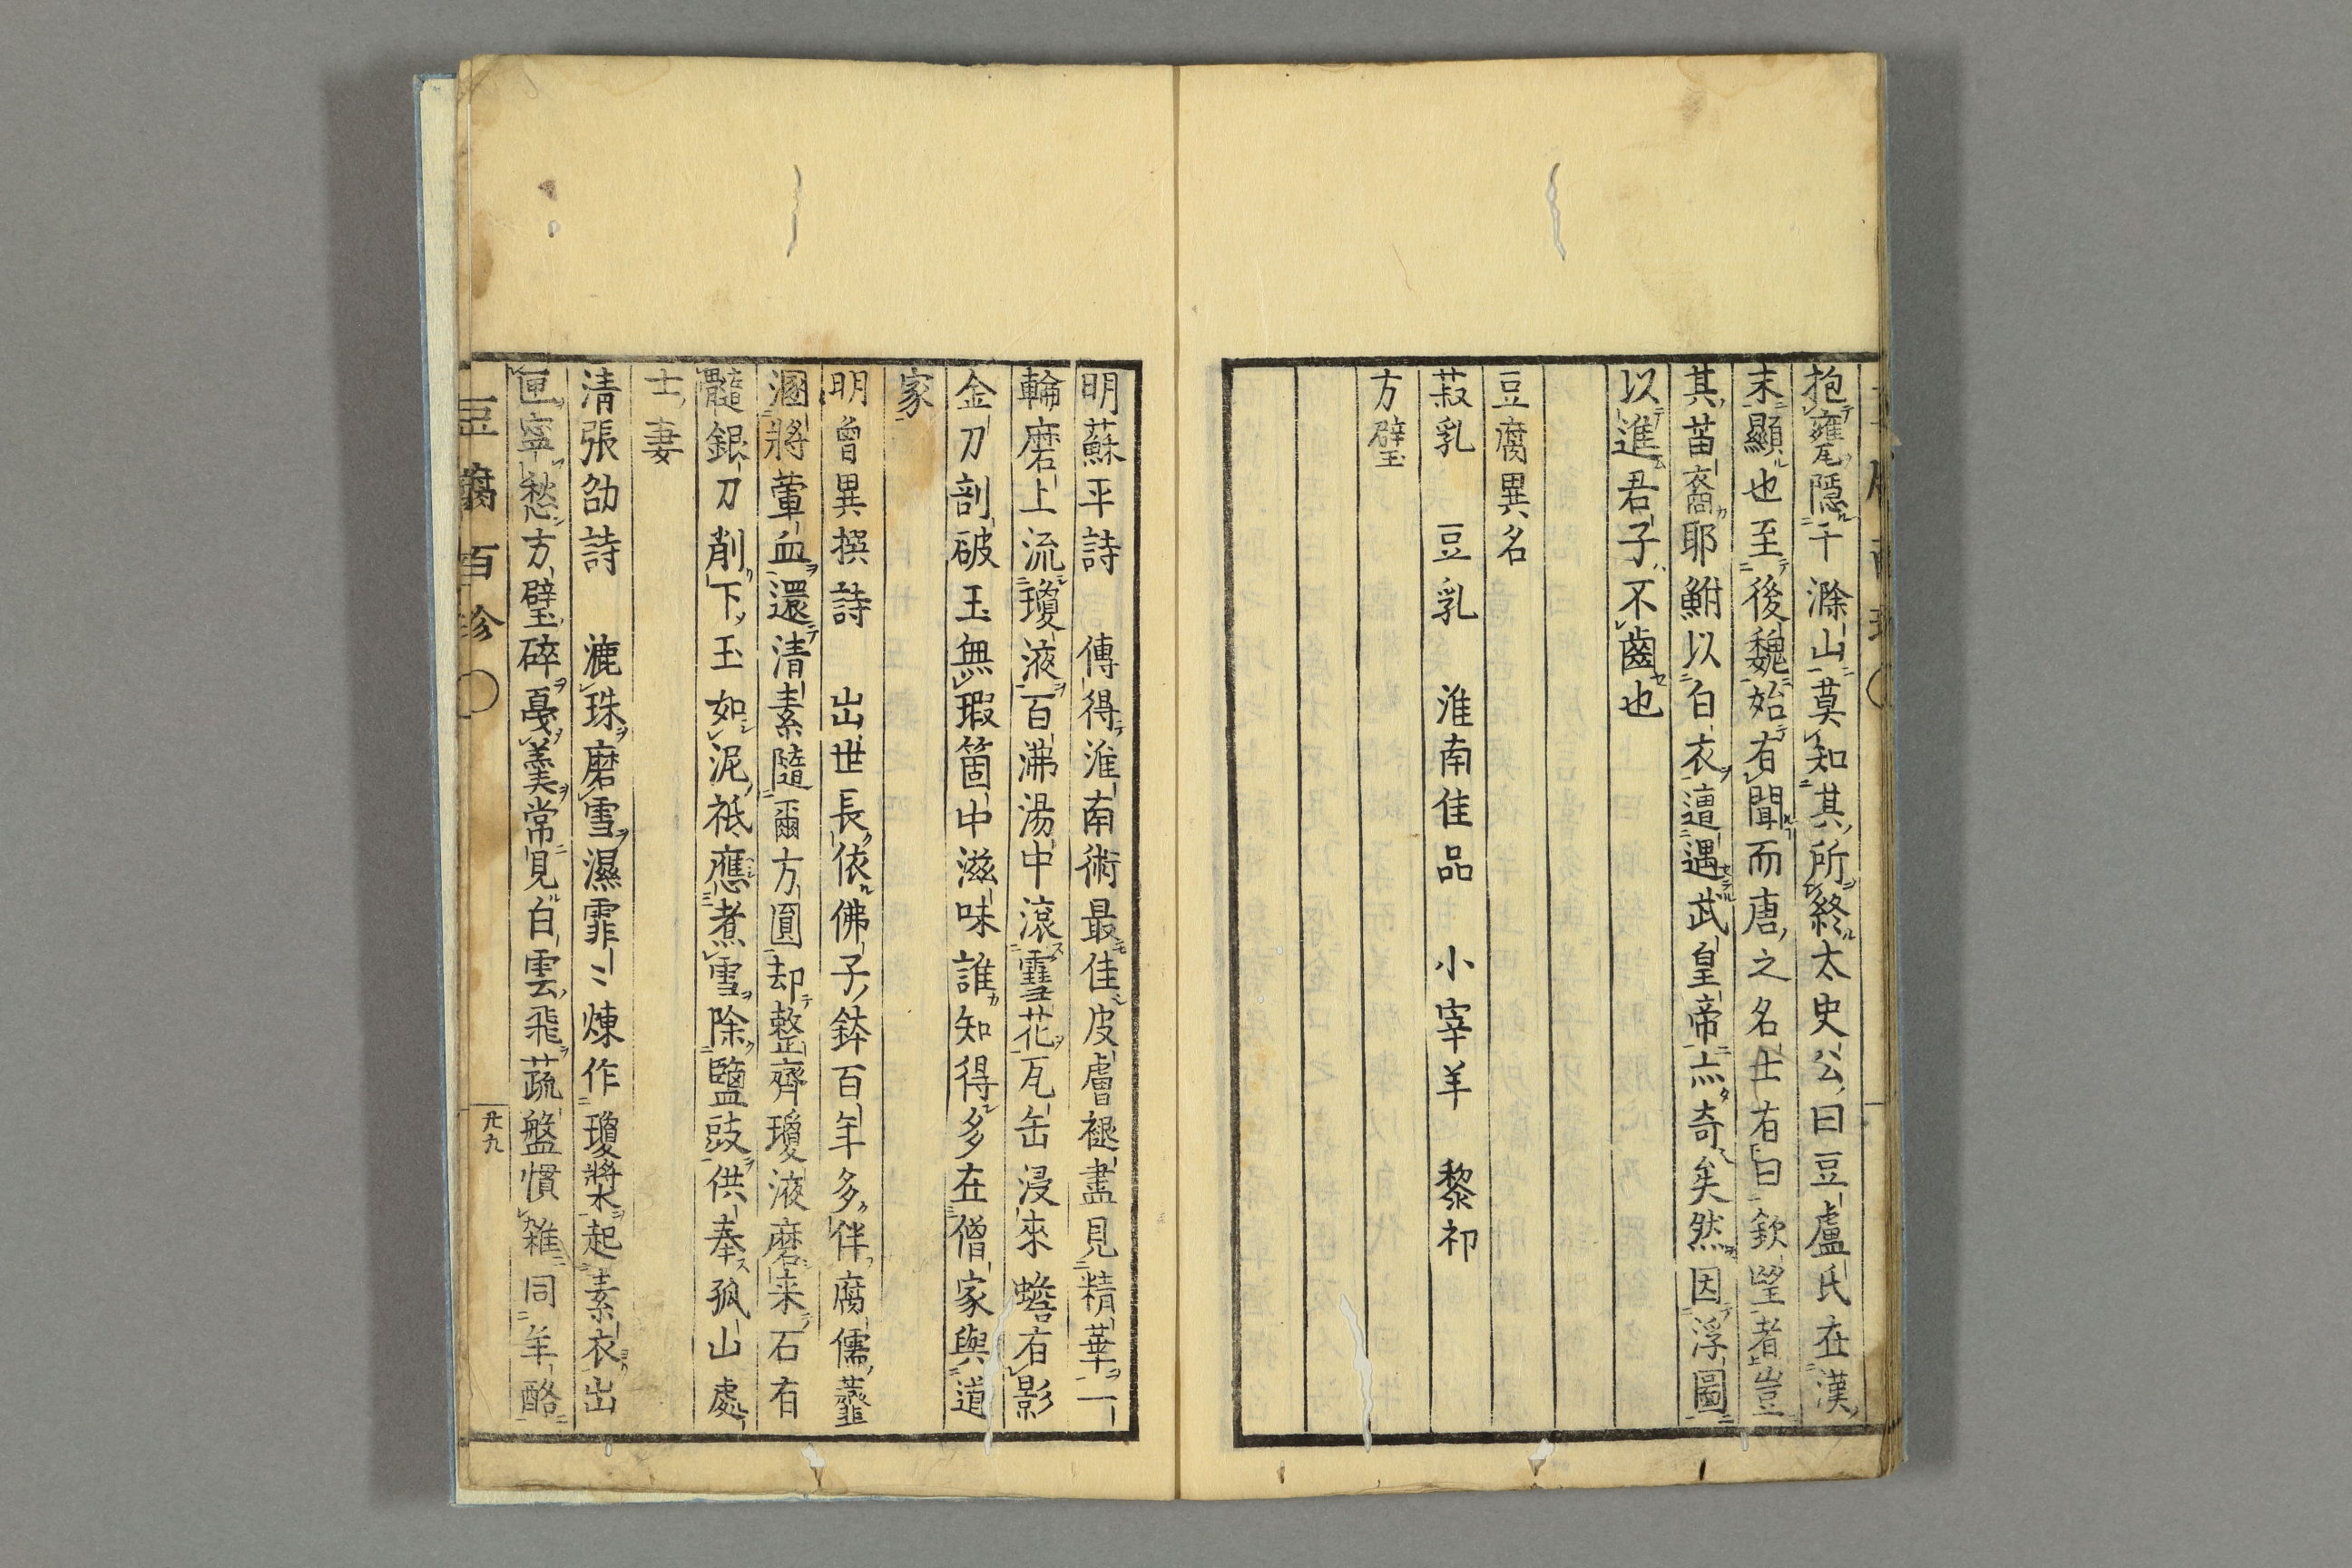 抱甕隱于滁山莫知其所終太史公曰豆盧氏在漢
末顯也至後魏始有聞而唐之名士有曰欽望者豈
其苗裔耶鮒以白衣遭遇武皇帝亦奇矣然因浮圖
以進君子不齒也
豆腐異名
菽乳 豆乳 淮南佳品 小宰羊 黎祁
方璧
明蘇平詩 傳得淮南術最佳皮膚褪盡見精華一
輪磨上流瓊液百沸湯中滾雪花瓦缶浸來蟾有影
金刀剖破玉無瑕箇中滋味誰知得多在僧家與道
家
明曾異撰詩 出世長依佛子鉢百年多伴腐儒虀
溷將葷血還清素隨爾方圓却整齊瓊液磨来石有
髓銀刀削下玉如泥祇應煮雪除鹽豉供奉孤山處
士妻
清張劭詩 漉珠磨雪濕霏〻煉作瓊漿起素衣出
匣寧愁方璧碎憂羹常見白雲飛蔬盤慣雑同羊酪
豆腐百珍
卄九